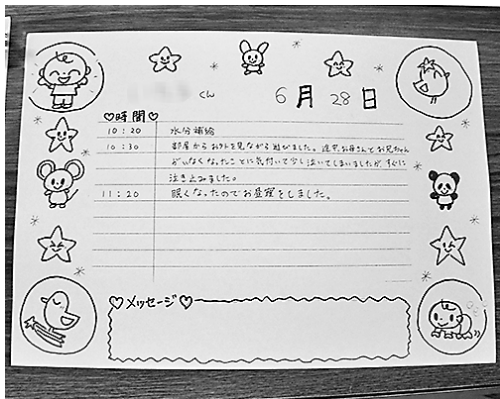 くん 6月28日
♡時間♡
10:20 水分補給
10:30 部屋からお外を見ながら遊びました。途中お母さんとお兄ちゃん
がいなくなったことに気付いて少し泣いてしまいましたが、すぐに
泣き止みました。
11:20 眠くなったのでお昼寝をしました。
♡メッセージ♡